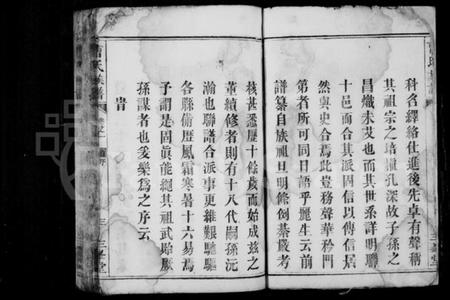 科名繹絡仕進後先卓有聲稱
其祖宗之培植孔深故子孫之
昌熾未艾也而其世系詳明聯
十邑而合其派固信以傳信居
然與史合焉此豈務聲華矜門
第者所可同日語乎麗生云前
譜纂自族祖旦明條例綦嚴考
核甚悉歷十餘歲而始成茲之
董績修者則有十八代嗣孫沅
瀚也聯諸合派事更維艱馳驅
各縣備歷風霜寒暑十六易焉
予謂是固眞能繩其祖武貽厥
孫謀者也爰樂為之序云
旹